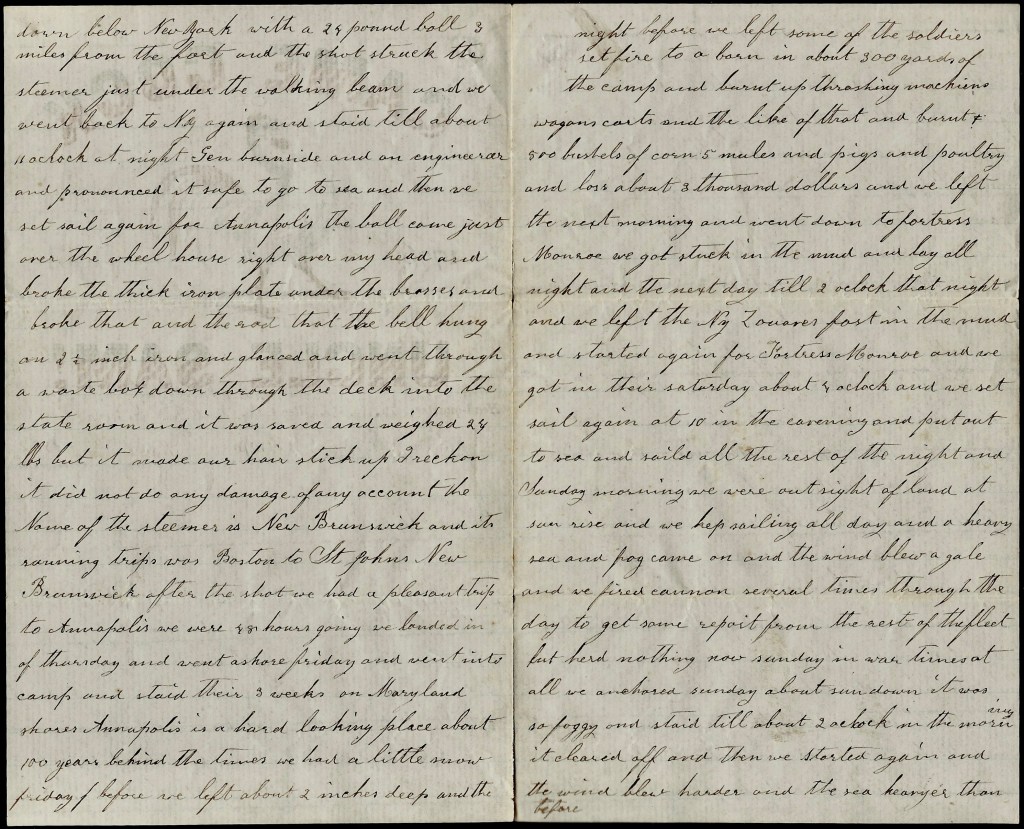 down below New York with a 24 pound ball 3
miles from the fort and the shot struck the
steemer just under the walking beam and we
went back to Ny again and staid till about
11 oclock at night Gen burnside and an engineear
and pronounced it safe to go to sea and then we
set sail again for Annapolis the ball came just
over the wheel house right over my head and
broke the thick iron plate under the brasses and
broke that and the rod that the bell hung
on 2½ inch iron and glanced and went through
a waste box down through the deck into the
state room and it was saved and weighed 24
lbs but it made our hair stick up I reckon
it did not do any damage of any account the
Name of the steemer is New Brunswick and its
running trips was Boston to St Johns New
Brunswick after the shot we had a pleasant trip
to Annapolis we were 48 hours going we landed in
of thursday and went ashore friday and went into
camp and staid their 3 weeks on Maryland
shores Annapolis is a hard looking place about
100 years behind the times we had a little snow
friday before we left about 2 inches deep and the
night before we left some of the soldiers
set fire to a barn in about 300 yards of
the camp and burnt up thrashing machiens
wagons carts and the like of that and burnt
500 bushels of corn 5 mules and pigs and poultry
and loss about 3 thousand dollars and we left
the next morning and went down to fortress
Monroe we got stuck in the mud and lay all
night and the next day till 2 oclock that night
and we left the Ny Zouaves fast in the mud
and started again for Fortress Monroe and we
got in their saturday about 4 oclock and we set
sail again at 10 in the eavening and put out
to sea and saild all the rest of the night and
Sunday morning we were out sight of land at
sun rise and we kep sailing all day and a heavy
sea and fog came on and the wind blew a gale
and we fired cannon several times through the
day to get some repoit from the rest of the fleet
but herd nothing now sunday in war times at
all we anchored sunday about sun down it was
so foggy and staid till about 2 oclock in the morning
it cleared off and then we started again and
the wind blew harder and the sea heavyer than
before